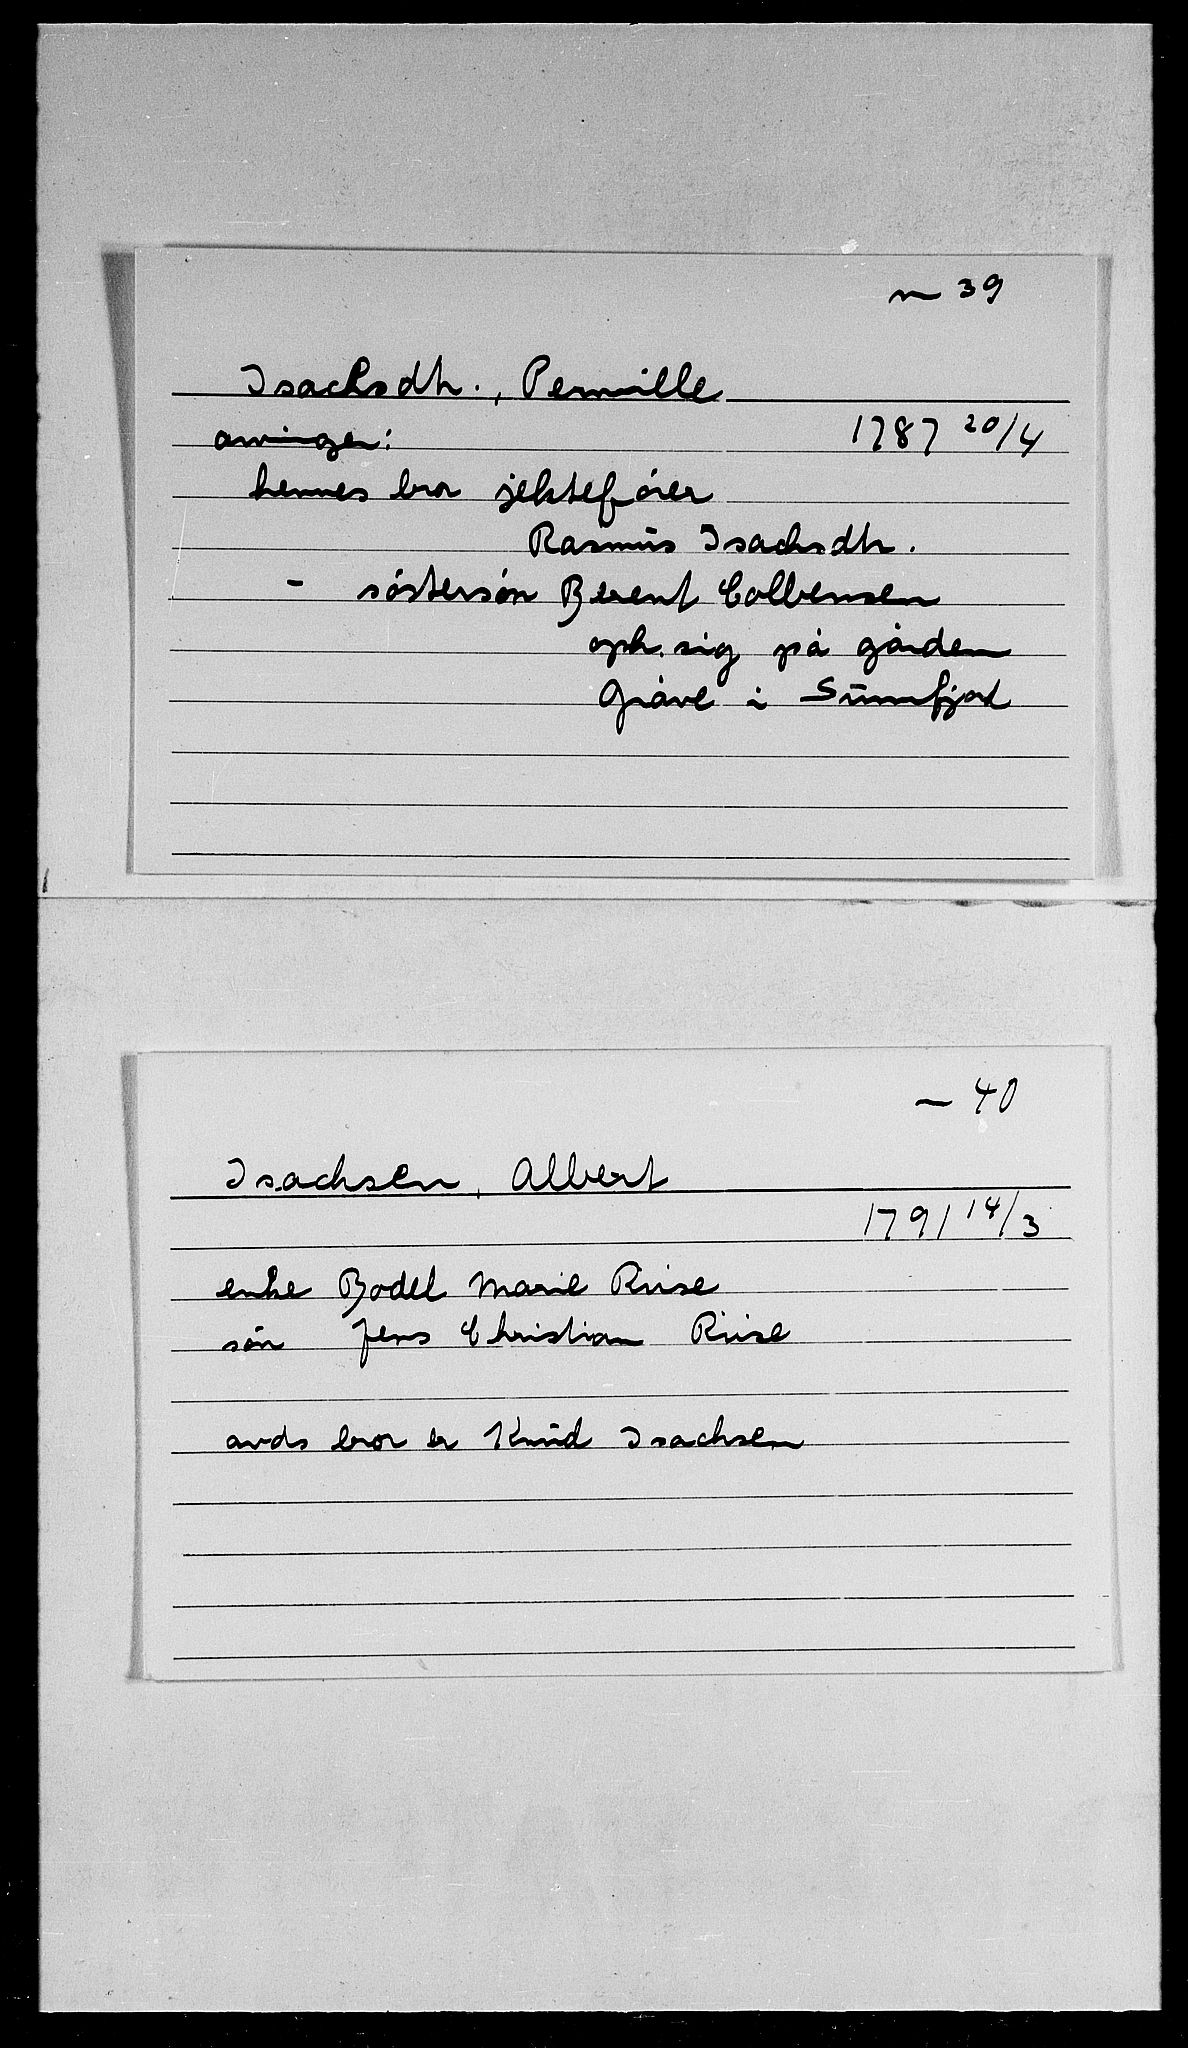 ~ 39
Isachsdtr., Pernille
arvinger: 1787 20/4
hennes bror jektefører
Rasmus Isachsdtr.
- søstersøn Berent Colbensen
oph. sig på gården
i Sunnfjord
~ 40
Isachsen, Albert
1791 14/3
enke Bodel Marie Riise
søn Jens Christian Riise
avds bror er Knud Isachsen